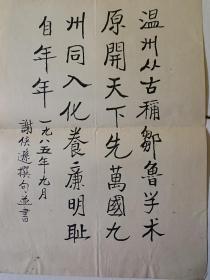 温州从古称鄒魯学术
原開天下先萬國九
州同入化養廉明耻
自年年 一九八五年九月
謝侠遜撰句並書